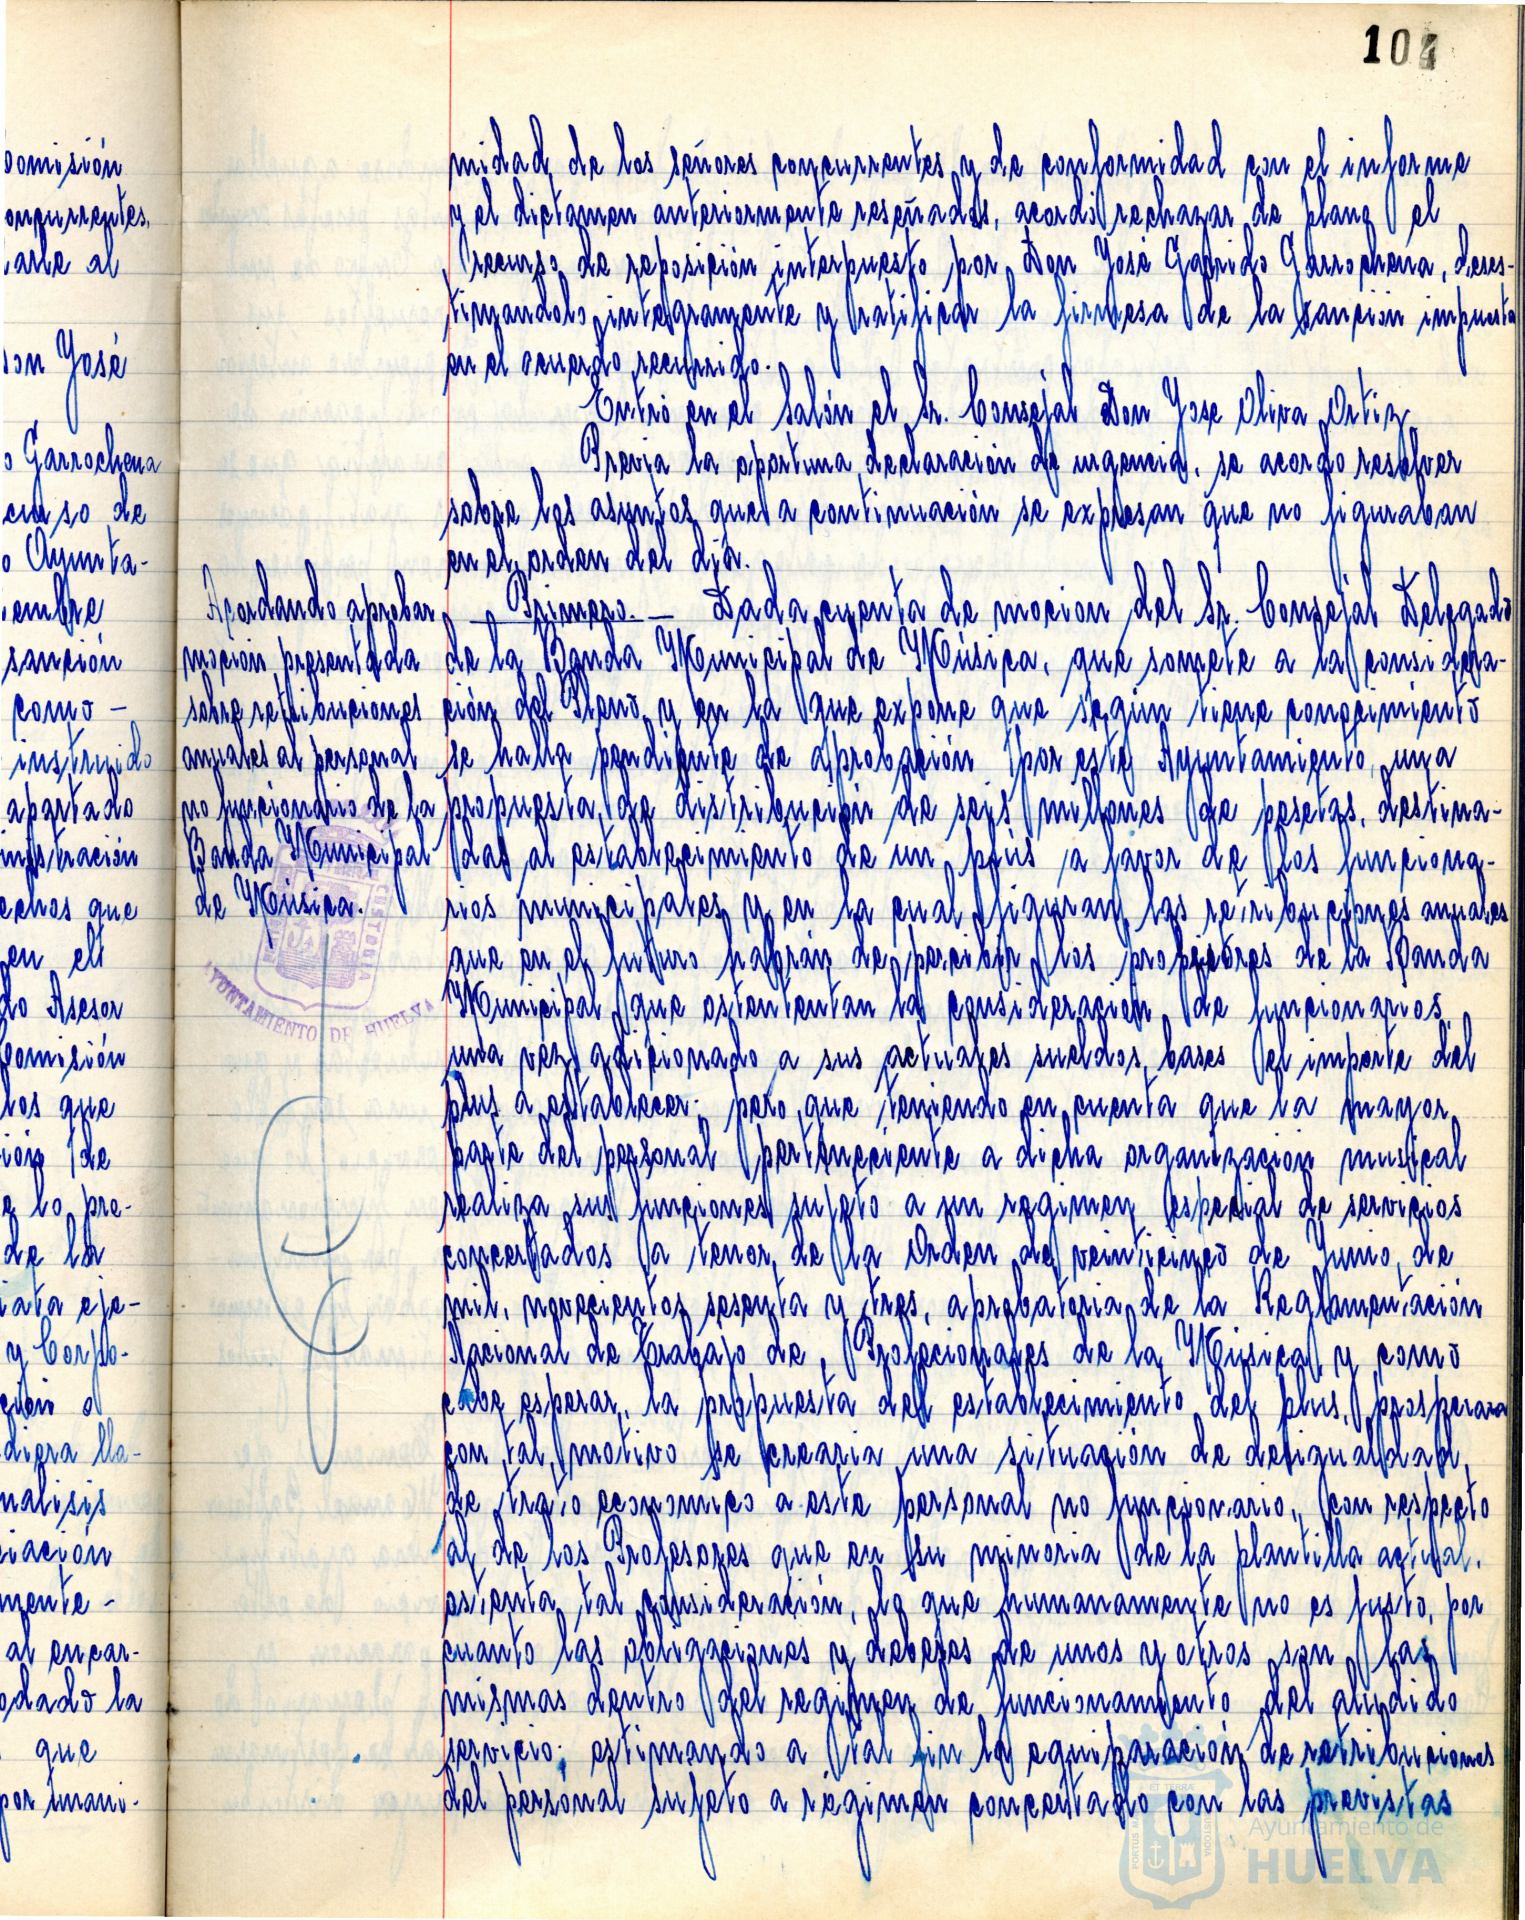 104
omisión
oncurrentes,
arle al
on José
o Garrochena
curso de
o Ayunta-
embre
sanción
como -
instruido
apartado
inistración
echos que
en el
do Asesor
Comisión
los que
ión de
e lo pre-
de la
iata eje-
y Corpo-
ción o
diera lla-
nalisis
iación
mente -
al encar-
odado la
que
por unani-
midad de los señores concurrentes y de conformidad con el informe
y el dictamen anteriormente reseñados, acordó rechazar de plano el
recurso de reposición interpuesto por Don José Garrido Garrochena, deses-
timandolo integramente y ratificar la firmesa de la sanción impuesta
en el acuerdo recurrido.
Entró en el Salón el Sr. Consejal Don Jose Oliva Ortiz.
Previa la oportuna declaración de urgencia, se acordo resolver
sobre los asuntos que a continuación se expresan que no figuraban
en el orden del dia.
Acordando aprobar
moción presentada
sobre retribuciones
anuales al personal
no funcionario de la
Banda Municipal
de Música.
Primero. — Dada cuenta de mocion del Sr. Consejal Delegado
de la Banda Municipal de Música, que somete a la considera-
ción del Pleno y en la que expone que según tiene conocimiento
se halla pendiente de aprobación por este Ayuntamiento, una
propuesta de distribución de seis millones de pesetas, destina-
das al establecimiento de un plus a favor de los funciona-
rios municipales y en la cual figuran las retribuciones anuales
que en el futuro habrán de percibir los profesores de la Banda
Municipal que ostententan la consideración de funcionarios,
una vez adicionado a sus actuales sueldos bases el importe del
plus a establecer; pero que teniendo en cuenta que la mayor
parte del personal perteneciente a dicha organización musical
realiza sus funciones sujeto a un regimen especial de servicios
concertados a tenor de la Orden de veinticinco de Junio de
mil novecientos sesenta y tres, aprobatoria de la Reglamentación
Nacional de Trabajo de Profecionales de la Música y como
cabe esperar, la propuesta del establecimiento del plus, prosperara
con tal motivo se crearia una situación de desigualdad
de trato economico a este personal no funcionario, con respecto
al de los Profesores que en su minoria de la plantilla actual,
ostenta tal consideración, lo que humanamente no es justo, por
cuanto las obligaciones y deberes de unos y otros son las
mismas dentro del regimen de funcionamiento del aludido
servicio; estimando a tal fin la equiparación de retribuciones
del personal sujeto a régimen concertado con las previstas
AYUNTAMIENTO DE HUELVA
Ayuntamiento de
HUELVA